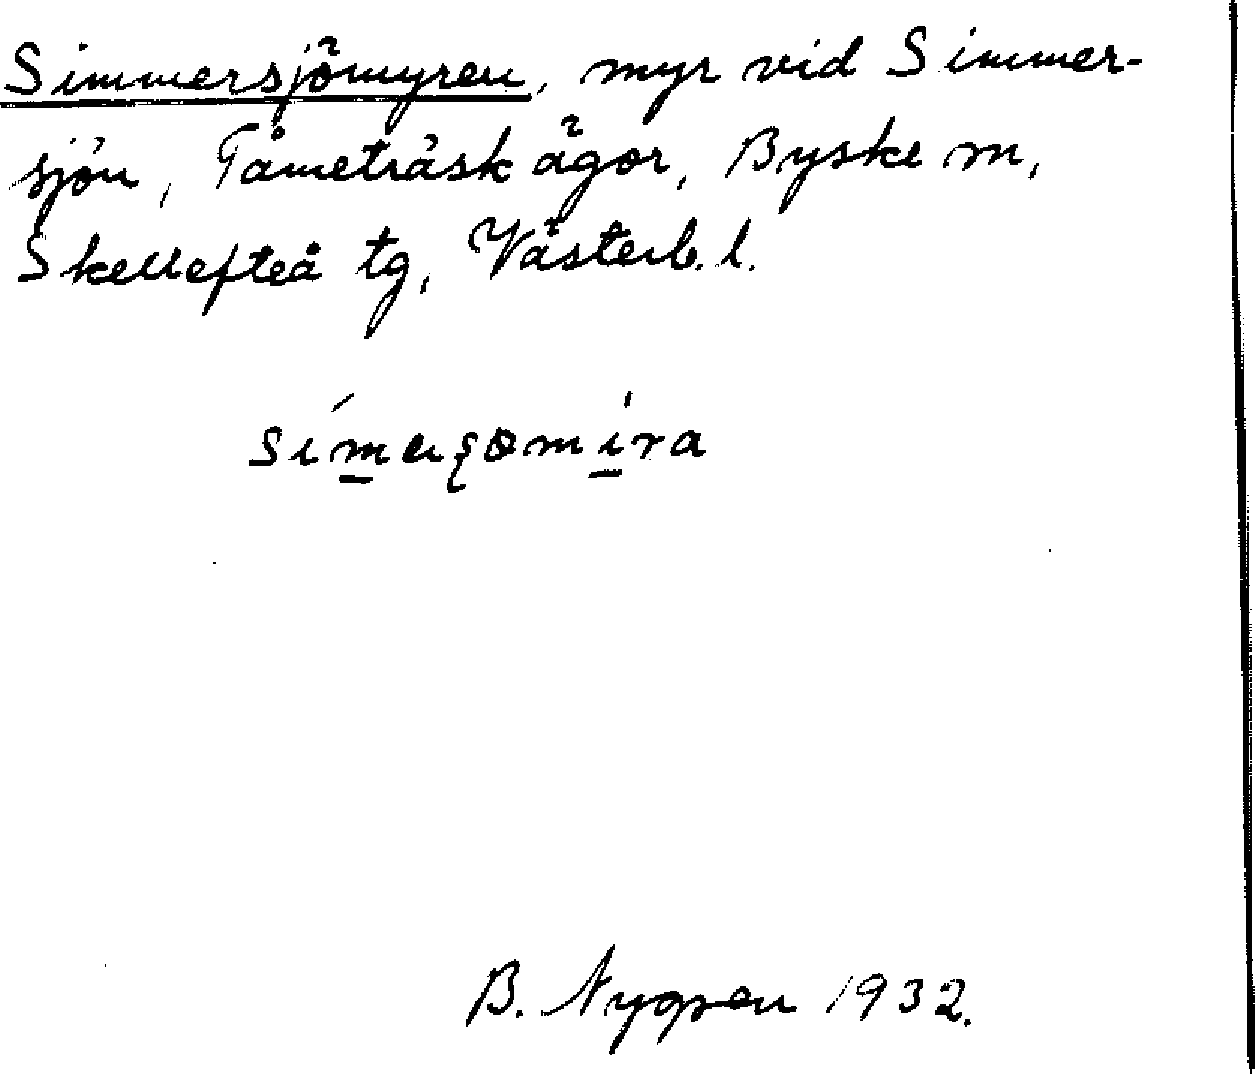 Simmersjömyren, myr vid Simmer-
sjön, Tåmeträsk ägor, Byske sn,
Skellefteå tg, Västerb. l.
B. Nygren 1932.